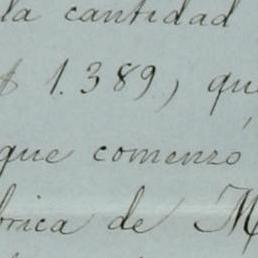 la cantidad
$ 1.389, que
que comenzó
brica de M